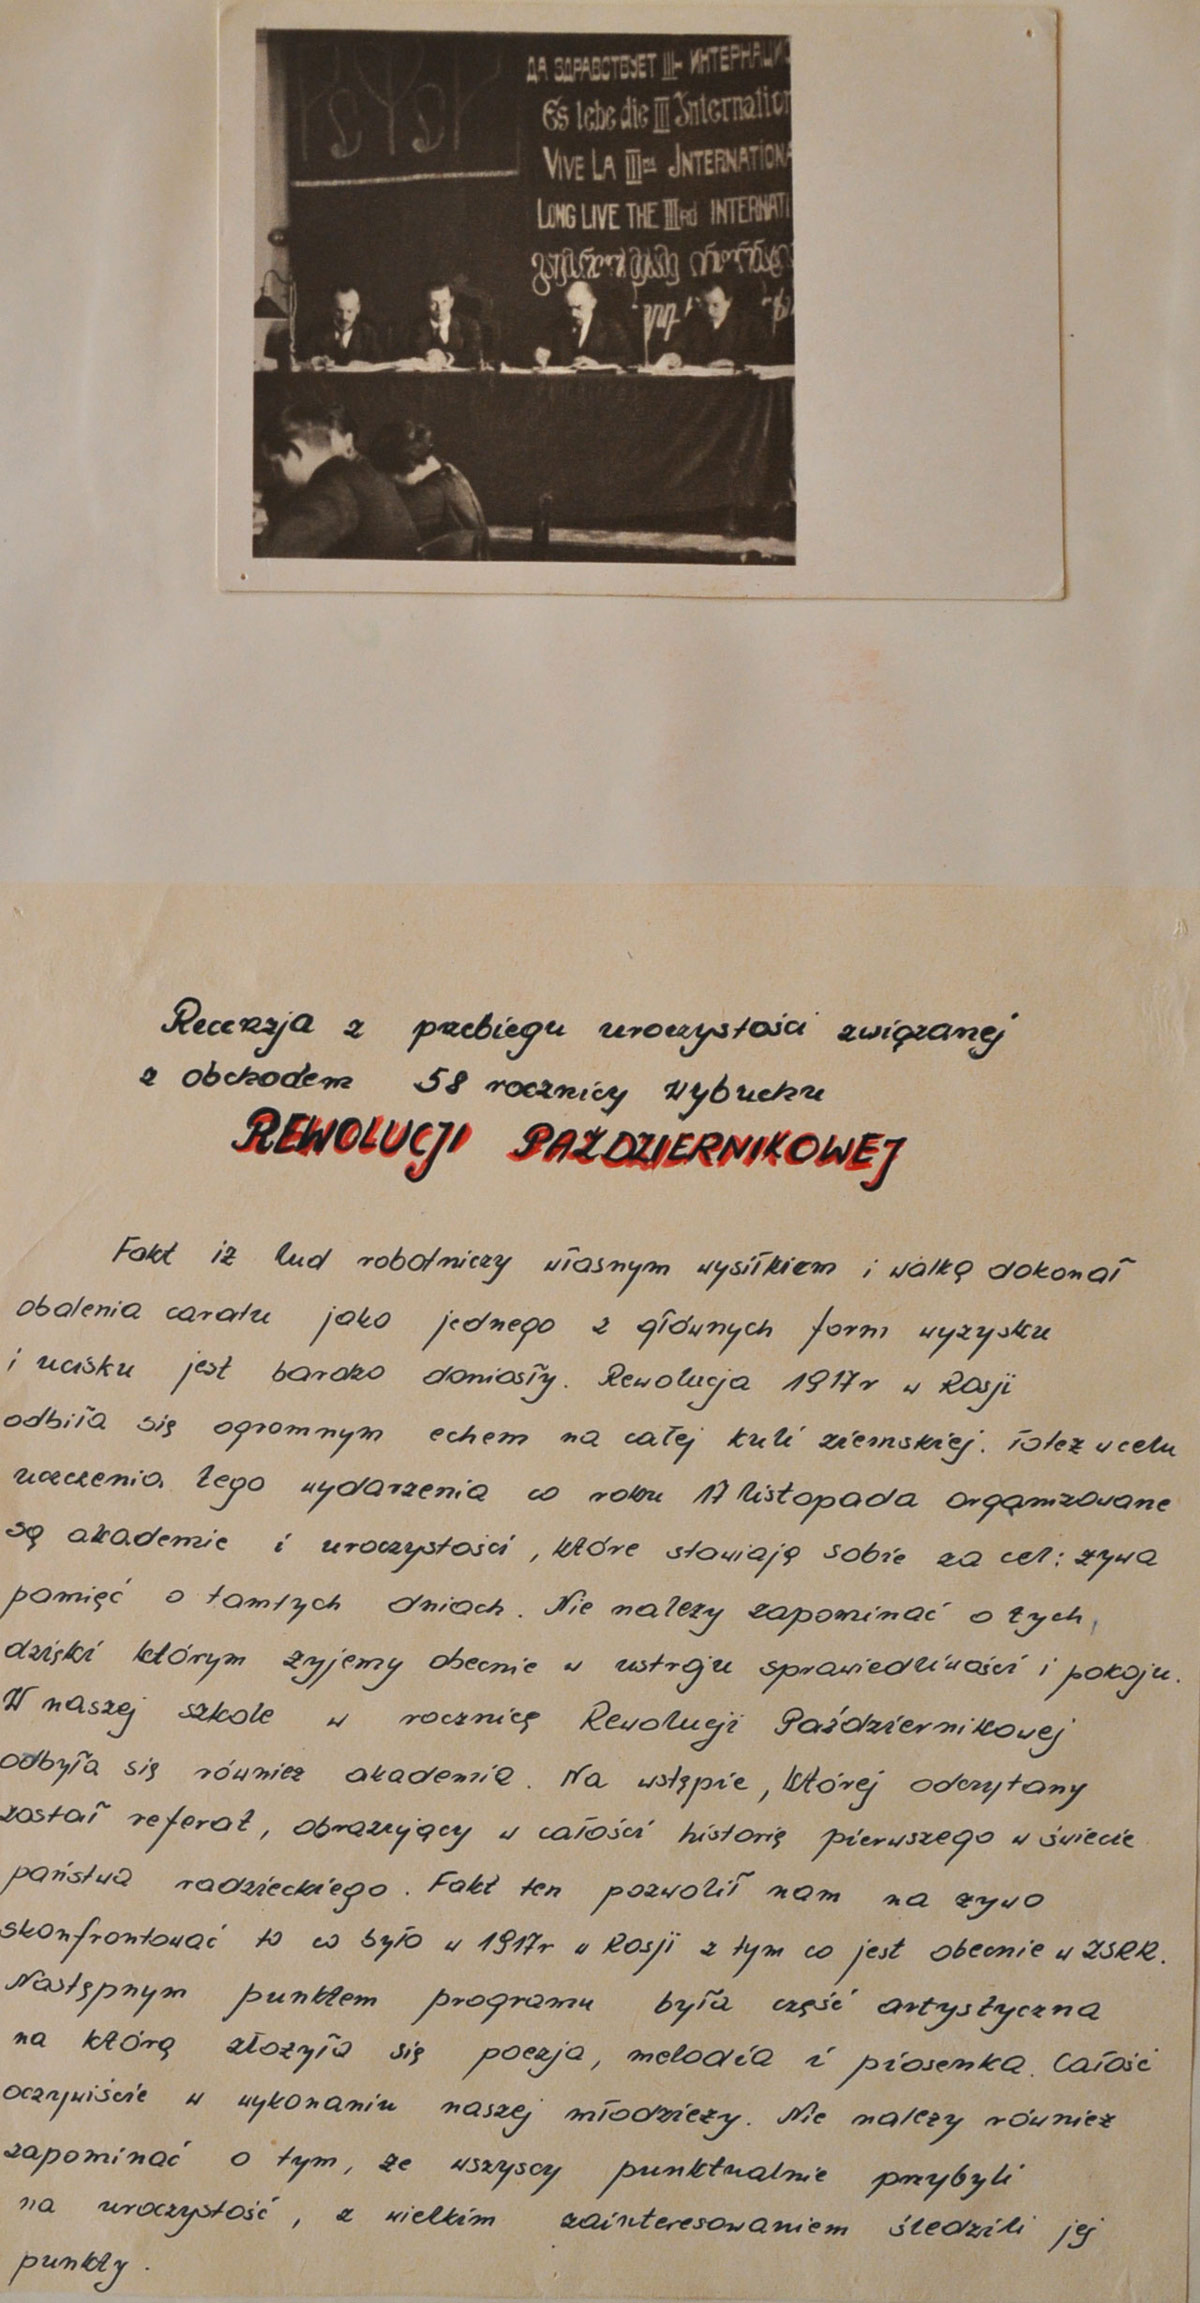 ДА ЗДРАВСТВУЕТ III-й ИНТЕРНАЦИО
Es lebe die III Internation
VIVE LA IIIme INTERNATIONA
LONG LIVE THE IIIrd INTERNATI
Recenzja z przebiegu uroczystości związanej
z obchodem 58 rocznicy wybuchu
REWOLUCJI PAŹDZIERNIKOWEJ
Fakt iż lud robotniczy własnym wysiłkiem i walką dokonał
obalenia caratu jako jednego z głównych form wyzysku
i ucisku jest bardzo doniosły. Rewolucja 1917r w Rosji
odbiła się ogromnym echem na całej kuli ziemskiej. Toteż w celu
uczczenia tego wydarzenia co roku 17 listopada organizowane
są akademie i uroczystości, które stawiają sobie za cel: żywa
pamięć o tamtych dniach. Nie należy zapominać o tych,
dzięki którym żyjemy obecnie w ustroju sprawiedliwości i pokoju.
W naszej szkole w rocznicę Rewolucji Październikowej
odbyła się również akademia. Na wstępie, której odczytany
został referat, obrazujący w całości historię pierwszego w świecie
państwa radzieckiego. Fakt ten pozwolił nam na żywo
skonfrontować to co było w 1917r w Rosji z tym co jest obecnie w ZSRR.
Następnym punktem programu była część artystyczna
na którą złożyła się poezja, melodia i piosenka. Całość
oczywiście w wykonaniu naszej młodzieży. Nie należy również
zapominać o tym, że wszyscy punktualnie przybyli
na uroczystość, z wielkim zainteresowaniem śledzili jej
punkty.